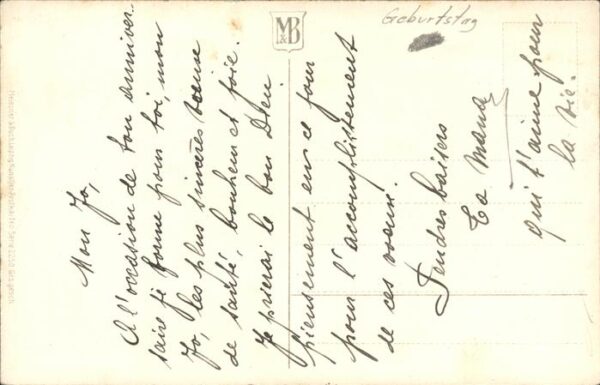 Geburtstag
M&B
Mon Jo,
A l'occasion de ton anniver-
saire je forme pour toi, mon
Jo, les plus sincères vœux
de santé, bonheur et joie.
Je prierai le bon Dieu
pieusement en ce jour
pour l'accomplissement
de ces vœux.
Tendres baisers
Ta Mana
qui t'aime pour
la vie.